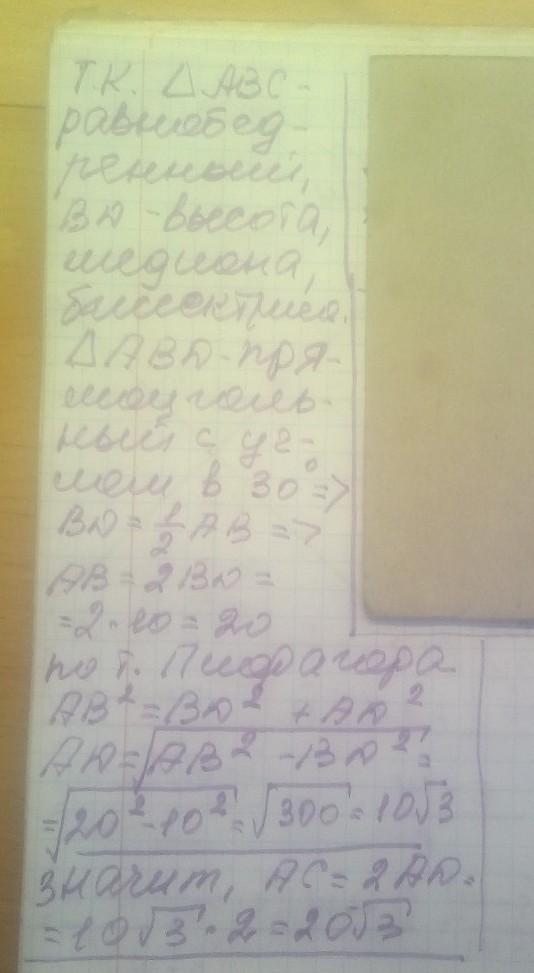 Т.К. △ABC-
равнобед-
ренный,
BD - высота,
медиана,
биссектриса.
△ABD - пря-
моуголь-
ный с уг-
лом в 30° =>
BD = 1/2 AB =>
AB = 2BD =
= 2 · 10 = 20
по т. Пифагора
AB² = BD² + AD²
AD = √(AB² - BD²) =
= √(20² - 10²) = √300 = 10√3
Значит, AC = 2AD =
= 10√3 · 2 = 20√3